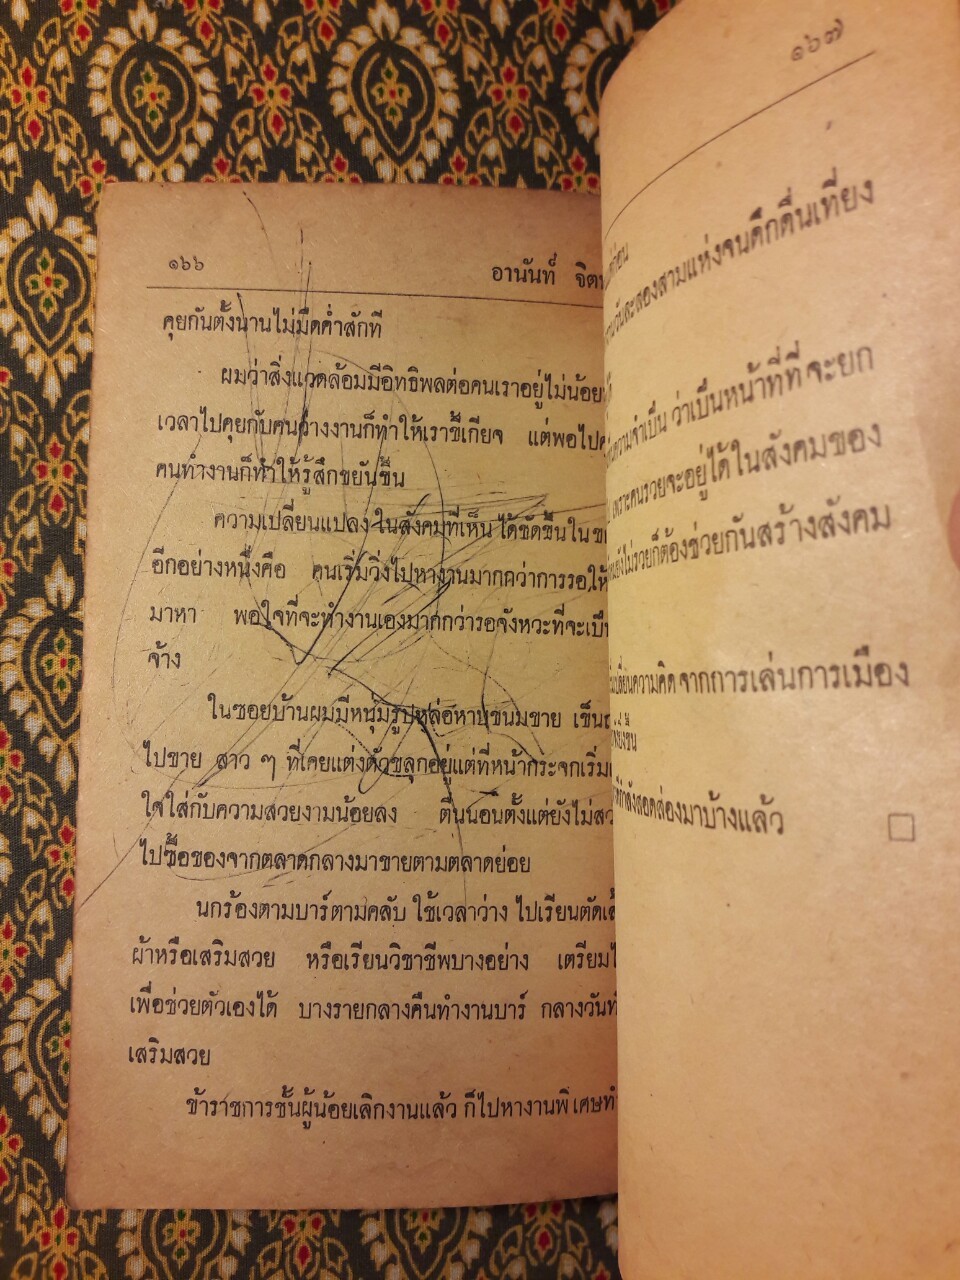 ๑๖๖
อานันท์ จิต
คุยกันตั้งนานไม่มืดค่ำสักที
ผมว่าสิ่งแวดล้อมมีอิทธิพลต่อคนเราอยู่ไม่น้อย
เวลาไปคุยกับคนว่างงานก็ทำให้เราขี้เกียจ แต่พอไป
คนทำงานก็ทำให้รู้สึกขยันขึ้น
ความเปลี่ยนแปลงในสังคมที่เห็นได้ชัดขึ้นใน
อีกอย่างหนึ่งคือ คนเริ่มวิ่งไปหางานมากกว่าการรอให้
มาหา พอใจที่จะทำงานเองมากกว่ารอจังหวะที่จะเป็น
จ้าง
ในซอยบ้านผมมีหนุ่มรูปหล่อหาบขนมขาย เข็น
ไปขาย สาว ๆ ที่เคยแต่งตัวขลุกอยู่แต่ที่หน้ากระจกเริ่ม
ใจใส่กับความสวยงามน้อยลง ตื่นนอนตั้งแต่ยังไม่
ไปซื้อของจากตลาดกลางมาขายตามตลาดย่อย
นักร้องตามบาร์ตามคลับ ใช้เวลาว่างไปเรียนตัด
ผ้าหรือเสริมสวย หรือเรียนวิชาชีพบางอย่าง เตรียม
เพื่อช่วยตัวเองได้ บางรายกลางคืนทำงานบาร์ กลางวัน
เสริมสวย
ข้าราชการชั้นผู้น้อยเลิกงานแล้ว ก็ไปหางานพิเศษ
๑๖๗
วันละสองสามแห่งจนดึกดื่นเที่ยง
ความจำเป็น ว่าเป็นหน้าที่ที่จะยก
เพราะคนรวยจะอยู่ได้ในสังคมของ
ยังไม่รวยก็ต้องช่วยกันสร้างสังคม
เปลี่ยนความคิดจากการเล่นการเมือง
กำลังสอดส่องมาบ้างแล้ว